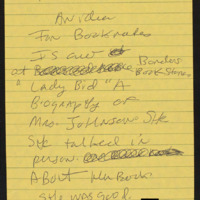 An idea
For Bookmates
I saw
at Borders Book Store
"Lady Bid" A
Biography of
Mrs. Johnson. She
She talked in
person.
About her Book
She was good.